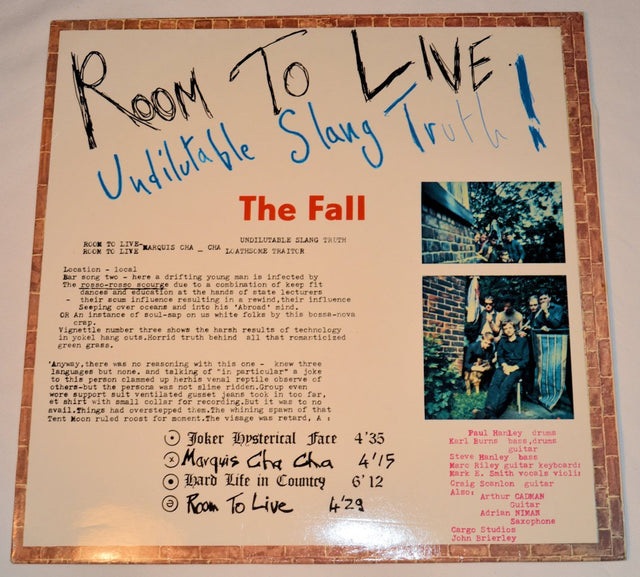 ROOM TO LIVE
Undilutable Slang Truth!
The Fall
ROOM TO LIVE- UNDILUTABLE SLANG TRUTH
ROOM TO LIVE MARQUIS CHA _ CHA LOATHSOME TRAITOR
Location - local
Bar song two - here a drifting young man is infected by
The rosso-rosso scourge due to a combination of keep fit
dances and education at the hands of state lecturers
- their scum influence resulting in a rewind,their influence
Seeping over oceans and into his 'Abroad' mind.
OR An instance of soul-sap on us white folks by this bossa-nova
crap.
Vignettle number three shows the harsh results of technology
in yokel hang outs.Horrid truth behind all that romanticized
green grass.
'Anyway,there was no reasoning with this one - knew three
languages but none. and talking of "in particular" a joke
to this person clammed up herhis venal reptile observe of
others-but the persona was not slime ridden.Group even
wore support suit ventilated gusset jeans took in too far,
et shirt with small collar for recording.But it was to no
avail.Things had overstepped them.The whining spawn of that
Tent Moon ruled roost for moment.The visage was retard, A :
Joker Hysterical Face 4'35
Marquis Cha Cha 4'15
Hard Life in Country 6'12
Room To Live 4'29
Paul Hanley drums
Karl Burns bass,drums
guitar
Steve Hanley bass
Marc Riley guitar keyboards
Mark E. Smith vocals violin
Craig Scanlon guitar
Also: Arthur CADMAN
Guitar
Adrian NIMAN
Saxophone
Cargo Studios
John Brierley